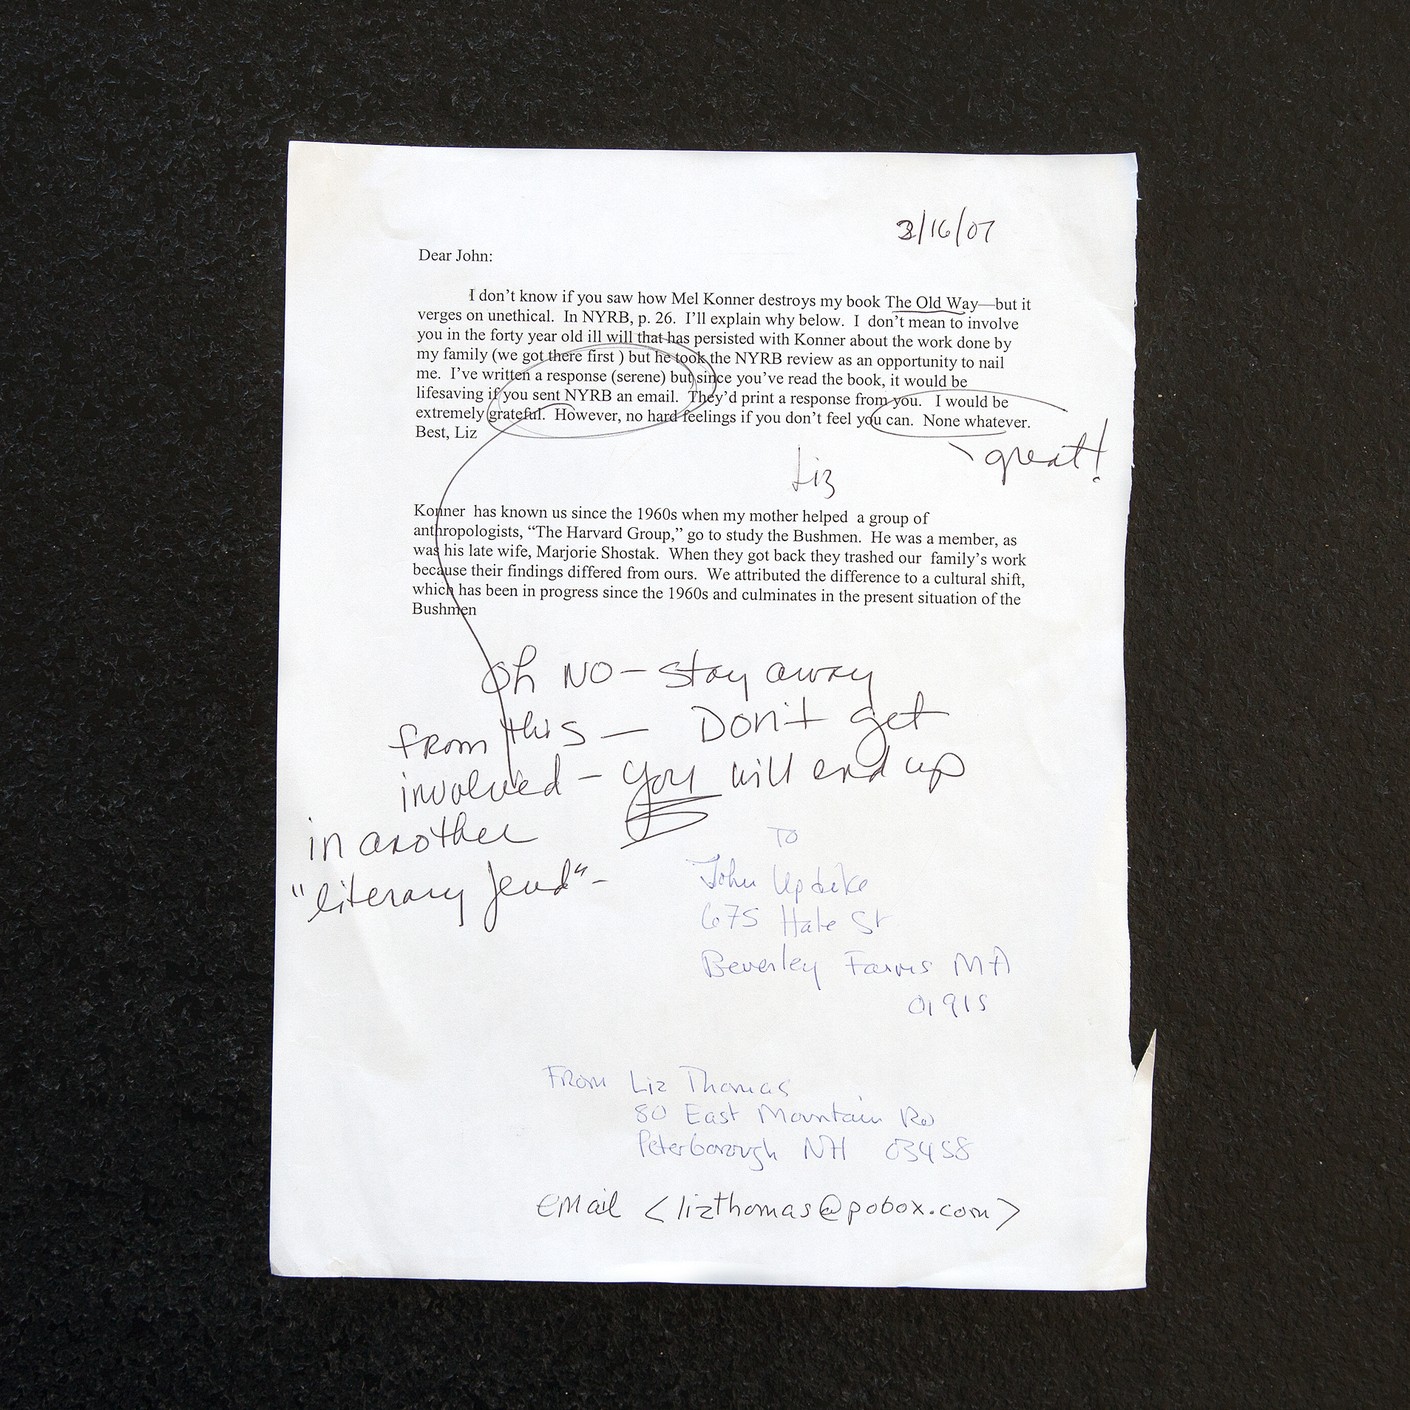 3/16/07
Dear John:
I don't know if you saw how Mel Konner destroys my book The Old Way—but it
verges on unethical.  In NYRB, p. 26.  I'll explain why below.  I  don't mean to involve
you in the forty year old ill will that has persisted with Konner about the work done by
my family (we got there first ) but he took the NYRB review as an opportunity to nail
me.  I've written a response (serene) but since you've read the book, it would be
lifesaving if you sent NYRB an email.  They'd print a response from you.  I would be
extremely grateful.  However, no hard feelings if you don't feel you can.  None whatever.
Best, Liz
great!
Liz
Konner  has known us since the 1960s when my mother helped  a group of
anthropologists, “The Harvard Group,” go to study the Bushmen.  He was a member, as
was his late wife, Marjorie Shostak.  When they got back they trashed our  family's work
because their findings differed from ours.  We attributed the difference to a cultural shift,
which has been in progress since the 1960s and culminates in the present situation of the
Bushmen
Oh NO — stay away
from this — Don't get
involved — you will end up
in another
"literary feud" -
To
John Updike
675 Hale St
Beverley Farms MA
01915
From Liz Thomas
80 East Mountain Rd
Peterborough NH 03458
email <lizthomas@pobox.com>